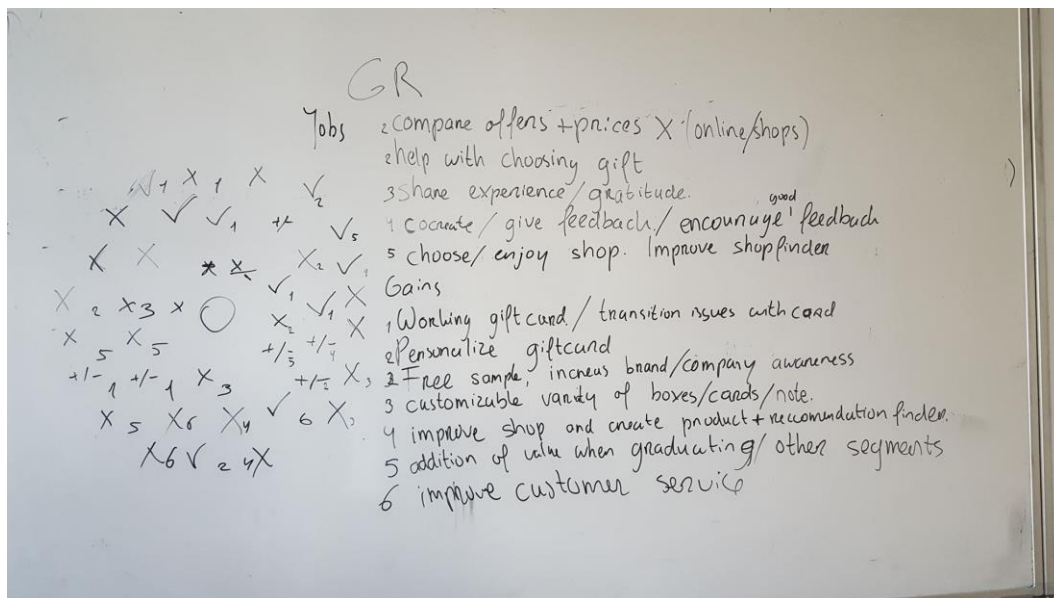 GR
Jobs 2 compare offers + prices X (online/shops)
2 help with choosing gift
3 Share experience / gratitude.
4 cocreate / give feedback / encourage good feedback
5 choose / enjoy shop. Improve shopfinder
Gains
1 Working giftcard / transition issues with card
2 Personalize giftcard
2 Free sample, increas brand/company awareness
3 customizable varity of boxes/cards/note.
4 improve shop and create product + reccomendation finder.
5 addition of value when graduating / other segments
6 improve customer service
√ 1 X 1 X √ 2
X √ √ 1 +/- √ 5
X X X X 2 √ 1
√ 1 √ 1 X
X 2 X 3 X X 2 X
X 5 X 5 +/- 3 +/- 4
+/- 1 +/- 1 X 3 +/- 2 X 3
X 5 X 6 X 4 √ 6 X 3
X 6 √ 2 4 X